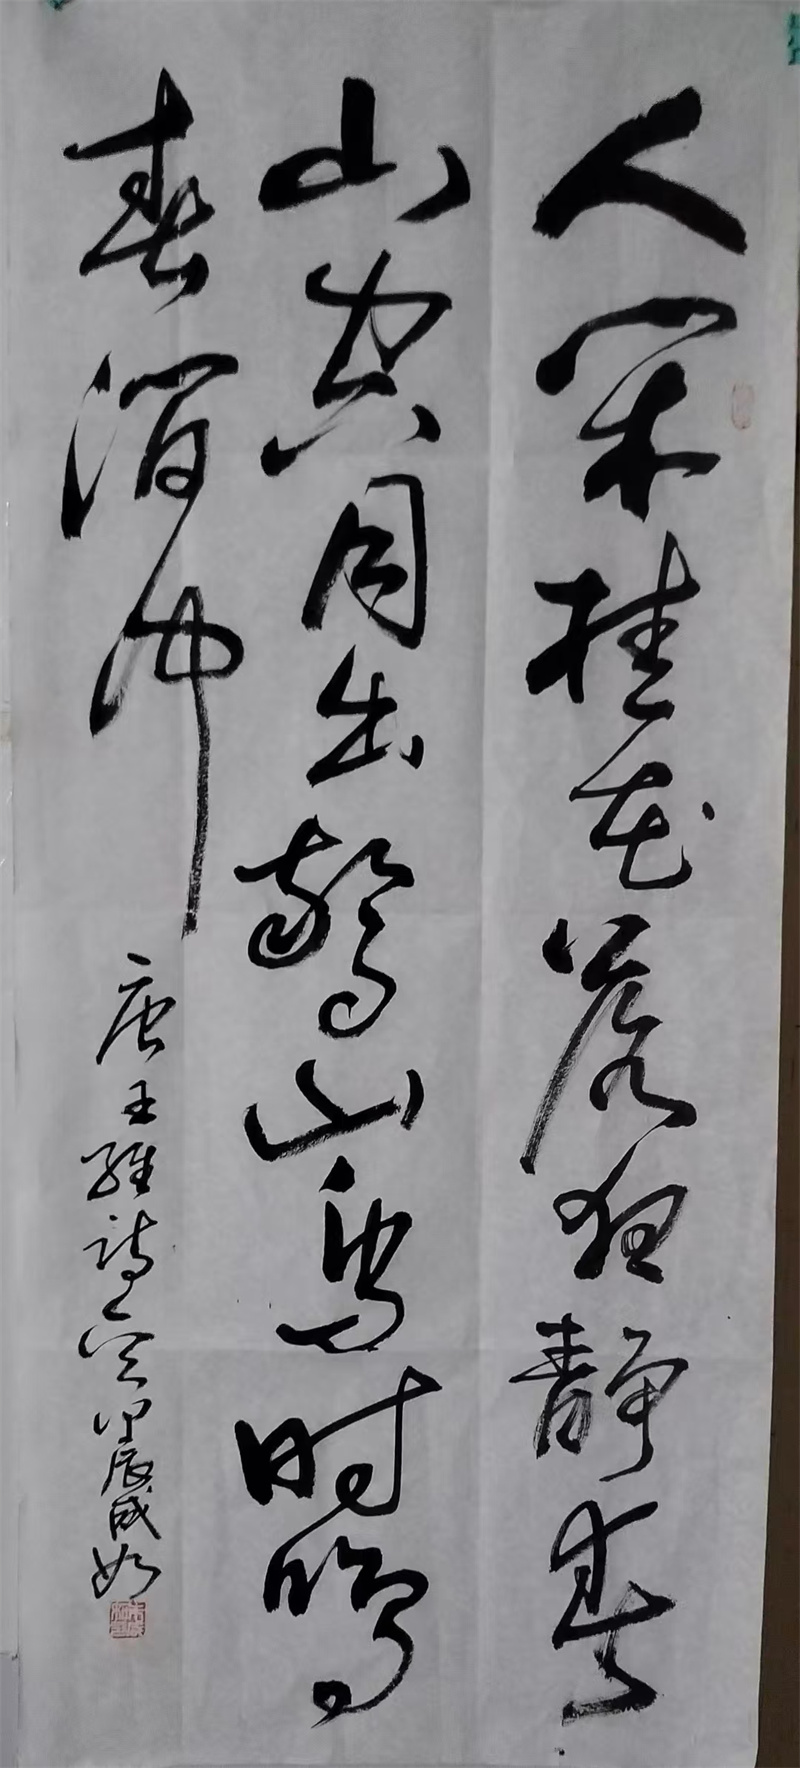 人闲桂花落夜静春
山空月出惊山鸟时鸣
春涧中
唐王维诗 甲辰成如